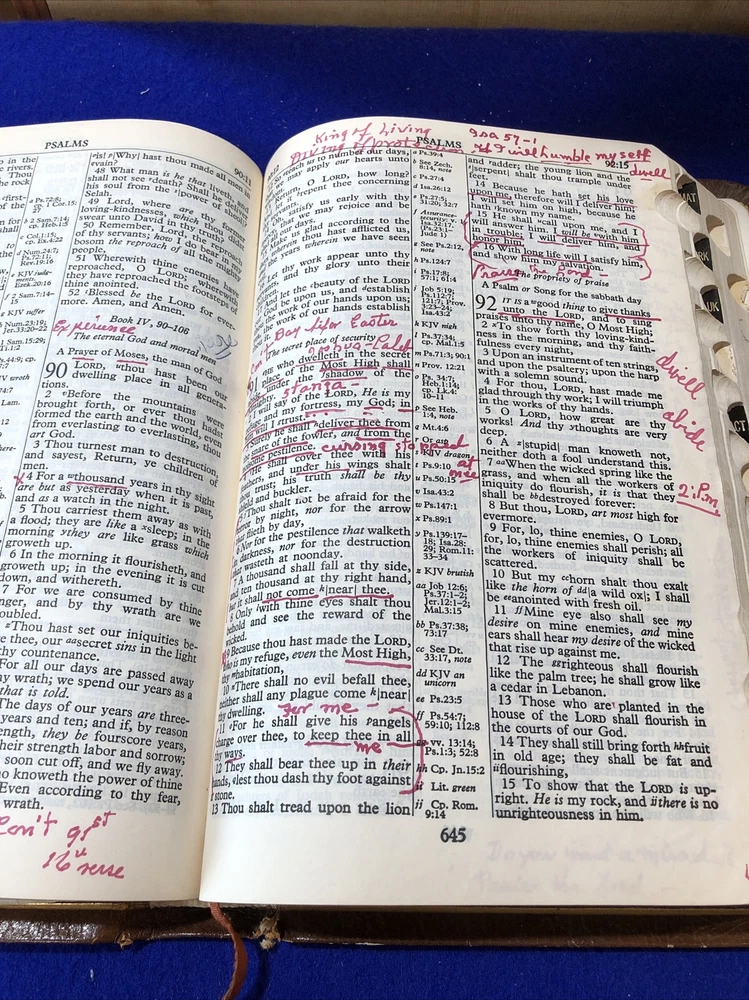 PSALMS
90:13
in the
rivers.
Thy
the rock
a Ps.72:8;
cp. Col.1:15;
b 2 Sam.7:14;
cp. Heb.1:5
c Col.1:15;
d Num.24:7;
Ps.72:11;
Rev.19:16
e KJV judg-
ments.
Ezek.20:16
f 2 Sam.7:14–
g KJV suffer
Why hast thou made all men
vain?
48 What man is he that liveth, and
shall not see death? Shall he deliver
his soul from the power of sheol?
Selah.
49 Lord, where are thy former
loving-kindnesses, which thou didst
swear unto David in thy truth?
50 Remember, Lord, the reproach
of thy servants; how I do bear in my
bosom the reproach of all the mighty
people,
51 Wherewith thine enemies have
reproached, O LORD, wherewith
they have reproached the footsteps of
thine anointed.
52 Blessed be the LORD for ever-
more. Amen, and Amen.
Book IV, 90–106
Experience
The eternal God and mortal man
A Prayer of Moses, the man of God
90 LORD, thou hast been our
dwelling place in all genera-
tions.
2 Before the mountains were
brought forth, or ever thou hadst
formed the earth and the world, even
from everlasting to everlasting, thou
art God.
Thou turnest man to destruction,
and sayest, Return, ye children of
men.
4 For a thousand years in thy sight
are but as yesterday when it is past,
and as a watch in the night.
5 Thou carriest them away as with
a flood; they are like a sleep; in the
morning they are like grass which
groweth up.
6 In the morning it flourisheth, and
groweth up; in the evening it is cut
down, and withereth.
7 For we are consumed by thine
anger, and by thy wrath are we
troubled.
Thou hast set our iniquities be-
fore thee, our secret sins in the light
of thy countenance.
For all our days are passed away
in thy wrath; we spend our years as a
tale that is told.
The days of our years are three-
score years and ten; and if, by reason
of strength, they be fourscore years,
yet is their strength labor and sorrow;
for it is soon cut off, and we fly away.
Who knoweth the power of thine
anger? Even according to thy fear,
so is thy wrath.
Con't 91st
16th verse
King of Living
PSALMS
92:15
to number our days,
that we may apply our hearts unto
O LORD, how long?
repent thee concerning
satisfy us early with thy
that we may rejoice and be
glad all our days.
Make us glad according to the
days wherein thou hast afflicted us,
and the years wherein we have seen
evil.
Let thy work appear unto thy
servants, and thy glory unto their
And let the beauty of the LORD
our God be upon us, and establish
thou the work of our hands upon us;
yea, the work of our hands establish
Day before Easter
The secret place of security
He who dwelleth in the secret
place of the Most High shall
abide under the shadow of the
stanza –
I will say of the LORD, He is my
refuge and my fortress, my God; in
him will I trust.
Surely he shall deliver thee from
the snare of the fowler, and from the
noisome pestilence. cursing stopped
He shall cover thee with his
feathers, and under his wings shalt
thou trust; his truth shall be thy
shield and buckler.
Thou shalt not be afraid for the
terror by night, nor for the arrow
that flieth by day,
Nor for the pestilence that walketh
in darkness, nor for the destruction
that wasteth at noonday.
A thousand shall fall at thy side,
and ten thousand at thy right hand,
but it shall not come near thee.
Only with thine eyes shalt thou
behold and see the reward of the
wicked.
Because thou hast made the LORD,
who is my refuge, even the Most High,
thy habitation,
10 There shall no evil befall thee,
neither shall any plague come near
thy dwelling. For me –
11 For he shall give his angels
charge over thee, to keep thee in all
thy ways. me
12 They shall bear thee up in their
hands, lest thou dash thy foot against
a stone.
13 Thou shalt tread upon the lion
a Ps.39:4
b See Zech.
8:14, note
c Ps.27:4
d Isa.26:12
g See Ps.2:12,
note
h Ps.124:7
i Ps.17:8;
57:1; 61:4
j Job 5:19;
Ps.112:7;
121:7; Prov.
3:23–24;
Isa.43:2
k KJV nigh
l Ps.37:34;
cp. Mal.1:5
m Ps.71:3; 90:1
n Prov. 12:21
o Ps.34:7;
Heb.1:14;
cp. Lk.4:
10–11
p See Heb.
1:4, note
q Mt.4:6
r Or asp
s KJV dragon
t Ps.9:10
u Ps.50:15
v Isa.43:2
w Ps.147:1
x Ps.89:1
y Ps.139:17–
18; Isa.28:
29; Rom.11:
33–34
z KJV brutish
aa Job 12:6;
Ps.37:1–2;
Jer.12:1–2;
Mal.3:15
bb Ps.37:38;
73:17
cc See Dt.
33:17, note
dd KJV an
unicorn
ee Ps.23:5
ff Ps.54:7;
59:10; 112:8
gg vv. 13:14;
Ps.1:3; 52:8
hh Cp. Jn.15:2
ii Lit. green
jj Cp. Rom.
9:14
Isa 57-1
I will humble myself
dwell
and adder; the young lion and the
serpent shalt thou trample under
feet.
14 Because he hath set his love
upon me, therefore will I deliver him;
I will set him on high, because he
hath known my name.
15 He shall call upon me, and I
will answer him. I will be with him
in trouble; I will deliver him, and
honor him.
16 With long life will I satisfy him,
and show him my salvation.
Praise the Lord –
The propriety of praise
A Psalm or Song for the sabbath day
92 IT IS a good thing to give thanks
unto the LORD, and to sing
praises unto thy name, O Most High;
2 To show forth thy loving-kind-
ness in the morning, and thy faith-
fulness every night,
3 Upon an instrument of ten strings,
and upon the psaltery; upon the harp
with a solemn sound.
4 For thou, LORD, hast made me
glad through thy work; I will triumph
in the works of thy hands.
5 O LORD, how great are thy
works! And thy thoughts are very
deep.
6 A stupid man knoweth not,
neither doth a fool understand this.
7 When the wicked spring like the
grass, and when all the workers of
iniquity do flourish, it is that they
shall be destroyed forever:
8 But thou, LORD, art most high for
evermore.
9 For, lo, thine enemies, O LORD,
for, lo, thine enemies shall perish; all
the workers of iniquity shall be
scattered.
10 But my horn shalt thou exalt
like the horn of a wild ox; I shall
be anointed with fresh oil.
11 Mine eye also shall see my
desire on mine enemies, and mine
ears shall hear my desire of the wicked
that rise up against me.
12 The righteous shall flourish
like the palm tree; he shall grow like
a cedar in Lebanon.
13 Those who are planted in the
house of the LORD shall flourish in
the courts of our God.
14 They shall still bring forth fruit
in old age; they shall be fat and
flourishing,
15 To show that the LORD is up-
right. He is my rock, and there is no
unrighteousness in him.
dwell
abide
at
me
2:P.m
645
MAT
RK
UK
CT